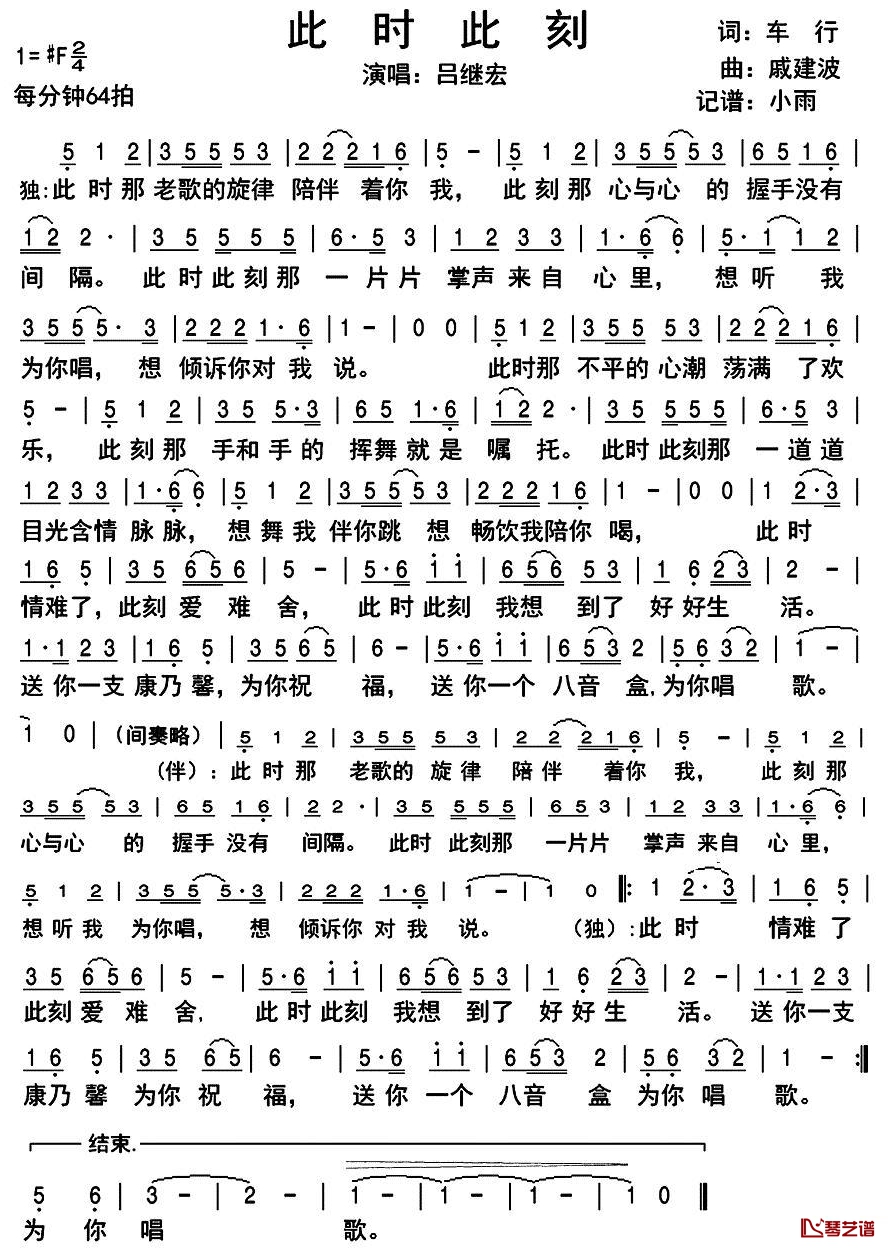 此 时 此 刻
词：车 行
1=♯F2/4
演唱：吕继宏
曲：戚建波
每分钟64拍
记谱：小雨
5 1 2 | 3 5 5 5 3 | 2 2 2 1 6 | 5 - | 5 1 2 | 3 5 5 5 3 | 6 5 1 6 |
独:此 时 那 老歌的旋律 陪伴 着你 我， 此 刻那 心与心 的 握手没有
1 2 2 · | 3 5 5 5 5 | 6 · 5 3 | 1 2 3 3 | 1 · 6 6 | 5 · 1 1 2 |
间 隔。 此 时 此 刻 那 一 片 片 掌声 来自 心 里， 想 听 我
3 5 5 5 · 3 | 2 2 2 1 · 6 | 1 - | 0 0 | 5 1 2 | 3 5 5 5 3 | 2 2 2 1 6 |
为你 唱， 想 倾诉你对 我 说。 此时那 不平的 心潮 荡满 了欢
5 - | 5 1 2 | 3 5 5 · 3 | 6 5 1 · 6 | 1 2 2 · | 3 5 5 5 5 | 6 · 5 3 |
乐， 此 刻那 手和 手 的 挥舞 就 是 嘱 托。 此时 此刻那 一 道道
1 2 3 3 | 1 · 6 6 | 5 1 2 | 3 5 5 5 3 | 2 2 2 1 6 | 1 - | 0 0 | 1 2 · 3 |
目光含情 脉 脉， 想 舞 我 伴你跳 想 畅饮我陪你 喝， 此 时
1 6 5 | 3 5 6 5 6 | 5 - | 5 · 6 i i | 6 5 6 5 3 | 1 6 2 3 | 2 - |
情难了，此刻 爱 难 舍， 此 时 此刻 我想 到了 好 好生 活。
1 · 1 2 3 | 1 6 5 | 3 5 6 5 | 6 - | 5 · 6 i i | 6 5 3 2 | 5 6 3 2 | 1 - |
送 你一支 康乃 馨，为你祝 福， 送 你一个 八音 盒,为你唱 歌。
1 0 | （间奏略） | 5 1 2 | 3 5 5 5 3 | 2 2 2 1 6 | 5 - | 5 1 2 |
（伴）：此 时 那 老歌的 旋律 陪伴 着你 我， 此 刻那
3 5 5 5 3 | 6 5 1 6 | 2 2 · | 3 5 5 5 5 | 6 5 3 | 1 2 3 3 | 1 · 6 6 |
心与心 的 握手 没有 间隔。 此时 此刻那 一片片 掌声 来自 心 里，
5 1 2 | 3 5 5 5 · 3 | 2 2 2 1 · 6 | 1 - | 1 0 ‖: 1 2 · 3 | 1 6 5 |
想听我 为你唱， 想 倾诉你 对 我 说。 （独）:此 时 情难 了
3 5 6 5 6 | 5 - | 5 · 6 i i | 6 5 6 5 3 | 1 6 2 3 | 2 - | 1 · 1 2 3 |
此刻 爱 难 舍, 此 时 此刻 我想 到了 好 好 生 活。 送 你一支
1 6 5 | 3 5 6 5 | 6 - | 5 · 6 i i | 6 5 3 2 | 5 6 3 2 | 1 - :‖
康乃 馨 为你 祝 福， 送 你 一个 八音 盒 为你 唱 歌。
结束.
5 6 | 3 - | 2 - | 1 - | 1 - | 1 - | 1 0 ‖
为 你 唱 歌。
琴艺谱